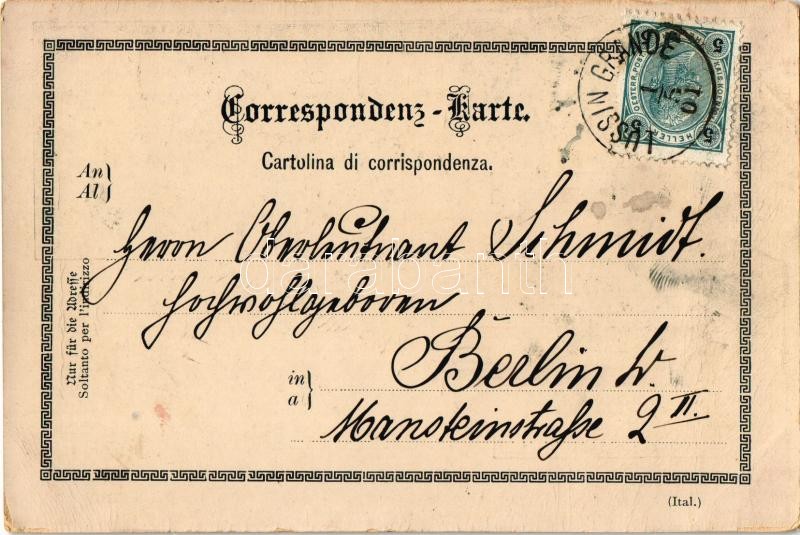 Correspondenz-Karte.
Cartolina di corrispondenza.
An
Al
Herrn Oberleutnant Schmidt.
Hochwohlgeboren
in
a
Berlin W.
Mansteinstraße 2 II.
Nur für die Adresse
Soltanto per l'indirizzo
(Ital.)
LUSSIN GRANDE
1
01
5
5
5
5
HELLER
darabanth